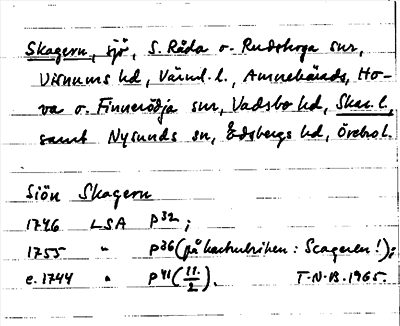 Skagern, sjö, S. Råda o. Rudskoga snr,
Visnums hd, Värml. l., Amnehärads, Ho-
va o. Finnerödja snr, Vadsbo hd, Skar. l.,
samt Nysunds sn, Edsbergs hd, Örebro l.
Siön Skagern
1746 LSA P32;
1755 " P36 (på kartrubriken: Scageren!);
e. 1744 " P41 (11/2). T-N-B. 1965.